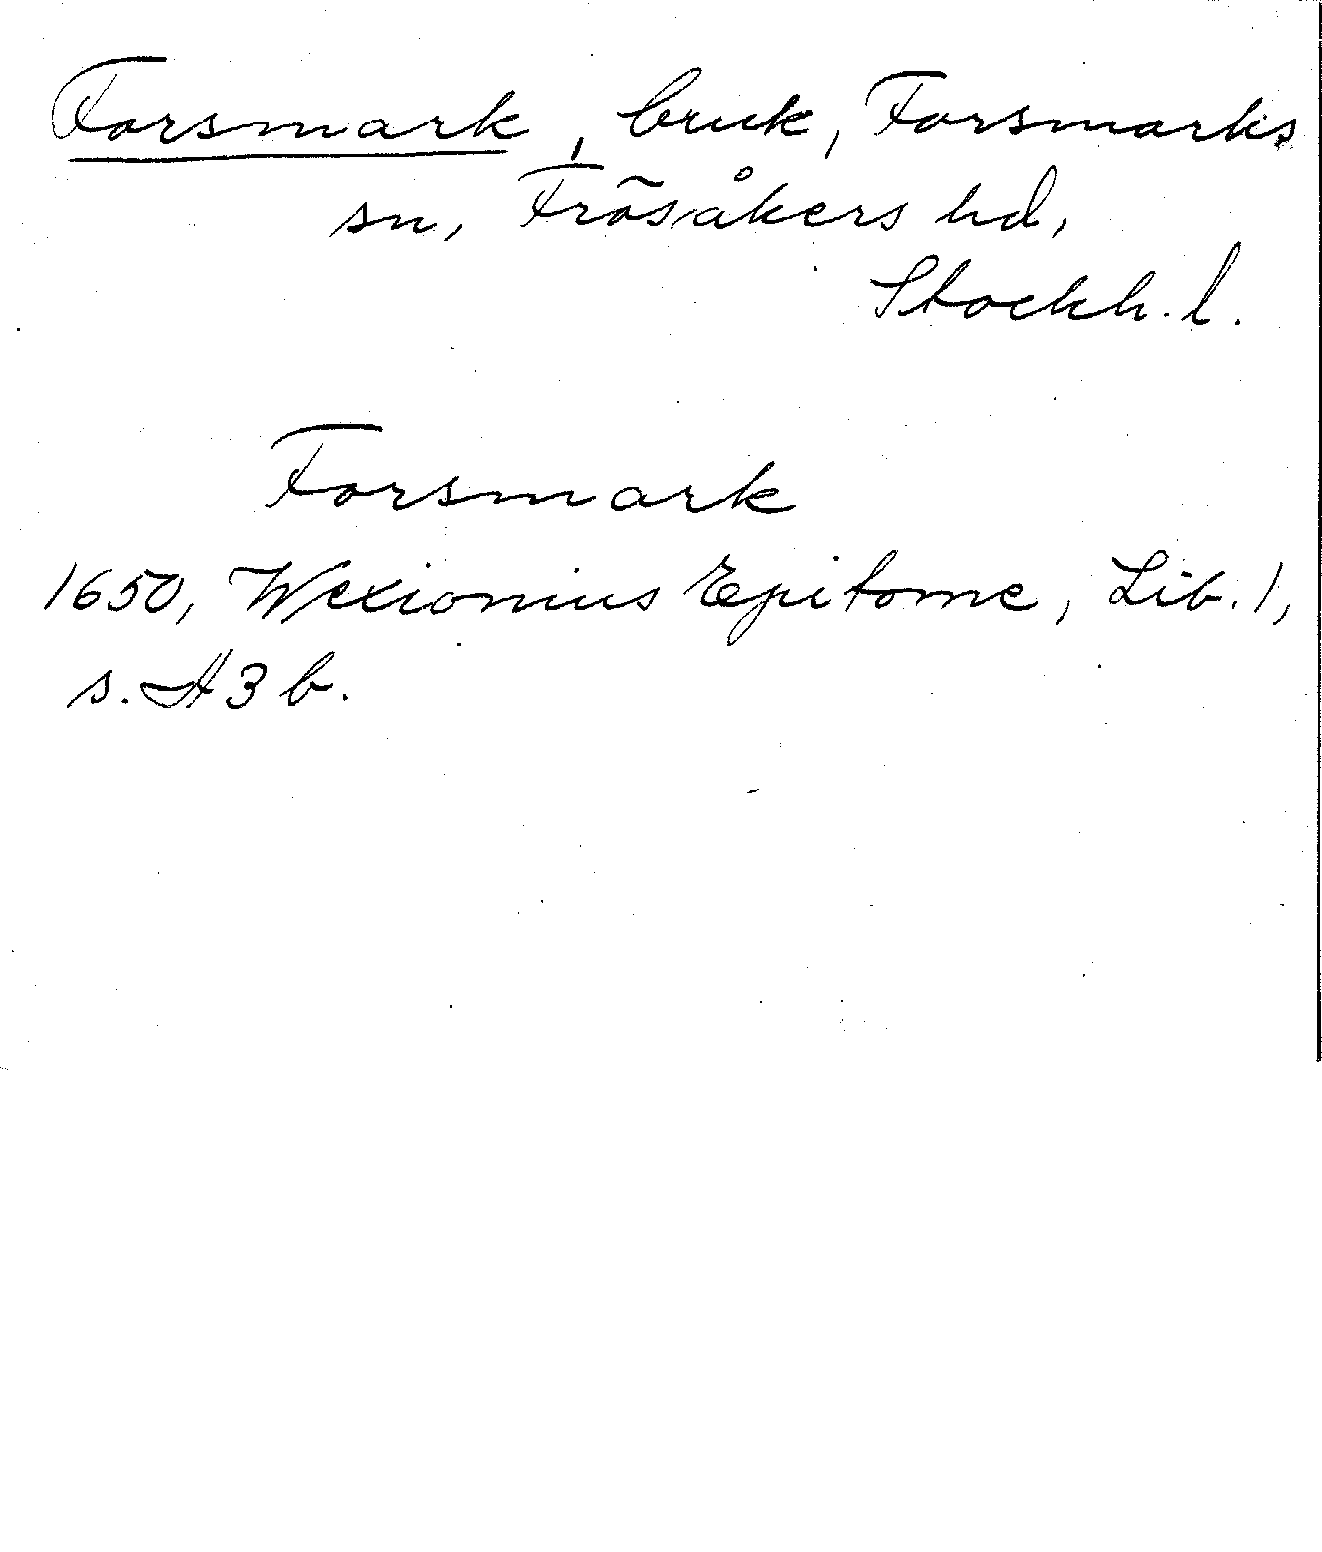 Forsmark, bruk, Forsmarks
sn, Frösåkers hd,
Stockh. l.
Forsmark
1650, Wexionius Epitome, Lib. 1,
s. H 3 b.